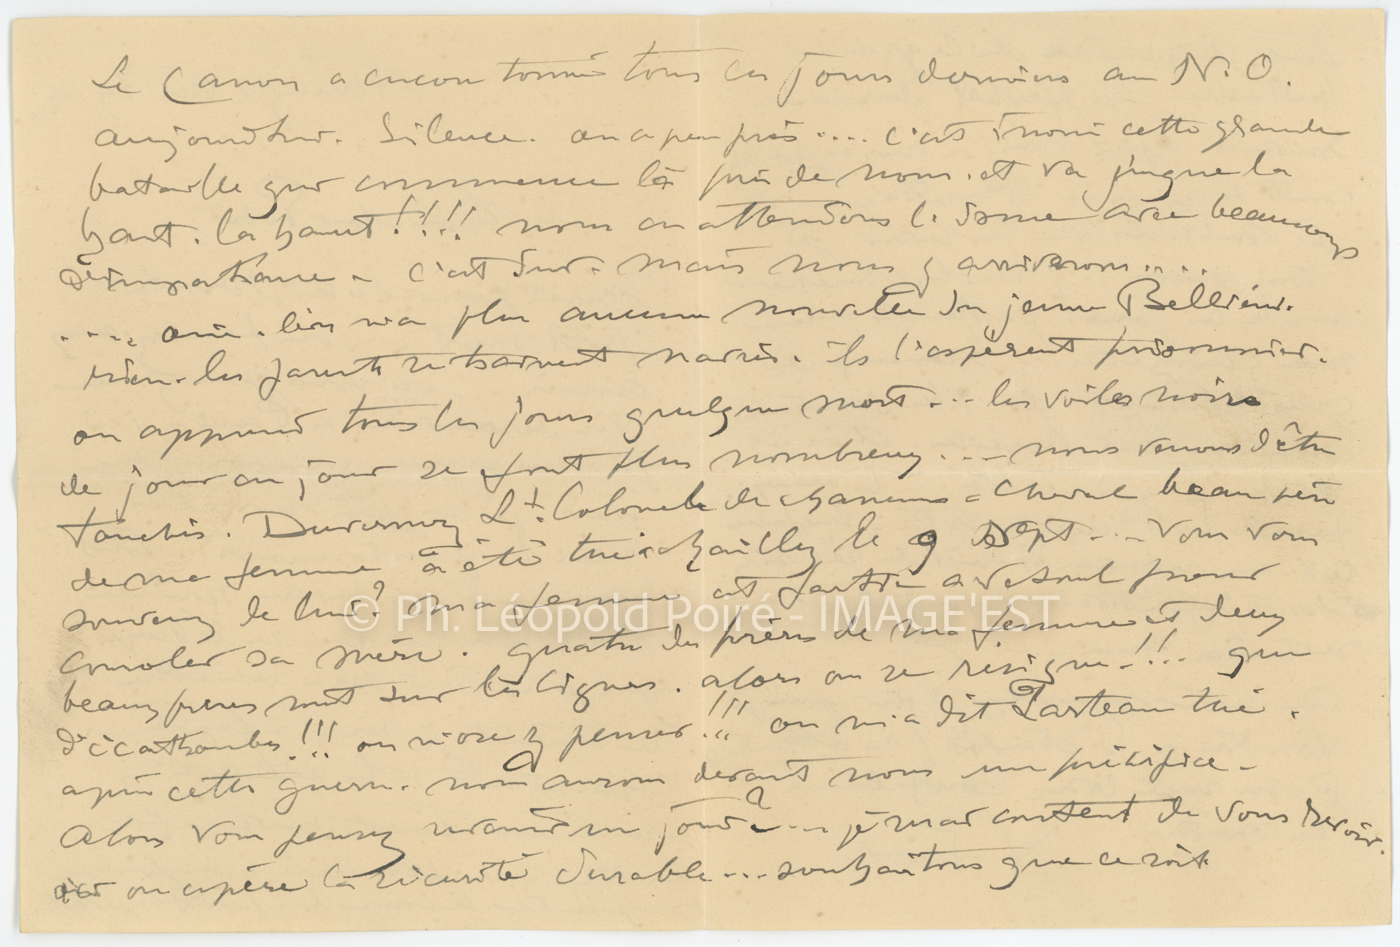 Le Canon a encore tonné tous ces jours derniers au N.O.
aujourd'hui. Silence. ou a peu près .... c'est inouï cette grande
bataille qui commence là près de nous. et va jusque la
haut. la haut !!!! nous en attendons le avec beaucoup
d'impatience. c'est dur. mais nous y arriverons ....
.... oui. l'on n'a plus aucune nouvelle du jeune Bellieni.
rien. les parents se trouvent navrés. ils l'espèrent prisonnier.
on apprend tous les jours quelque mort ... les voiles noirs
de jour en jour se font plus nombreux .... nous venons d'être
touchés. Duvernoy Lt. Colonel de chasseurs a cheval beau père
de ma femme a été tué a le 9 Sept .... Vous vous
souvenez de lui? ma femme est partie a Vesoul pour
consoler sa mère. quatre des frères de ma femme et deux
beaux frères sont sur les lignes. alors on se résigne !!! que
d'écatombes !!! on n'ose y penser !!! on m'a dit Parteau tué.
après cette guerre. nous aurons devant nous un précipice.
Alors vous pensez venir un jour? .... je serai content de vous revoir.
on espère la sécurité durable ... souhaitons que ce soit
© Ph. Léopold Poiré - IMAGE'EST